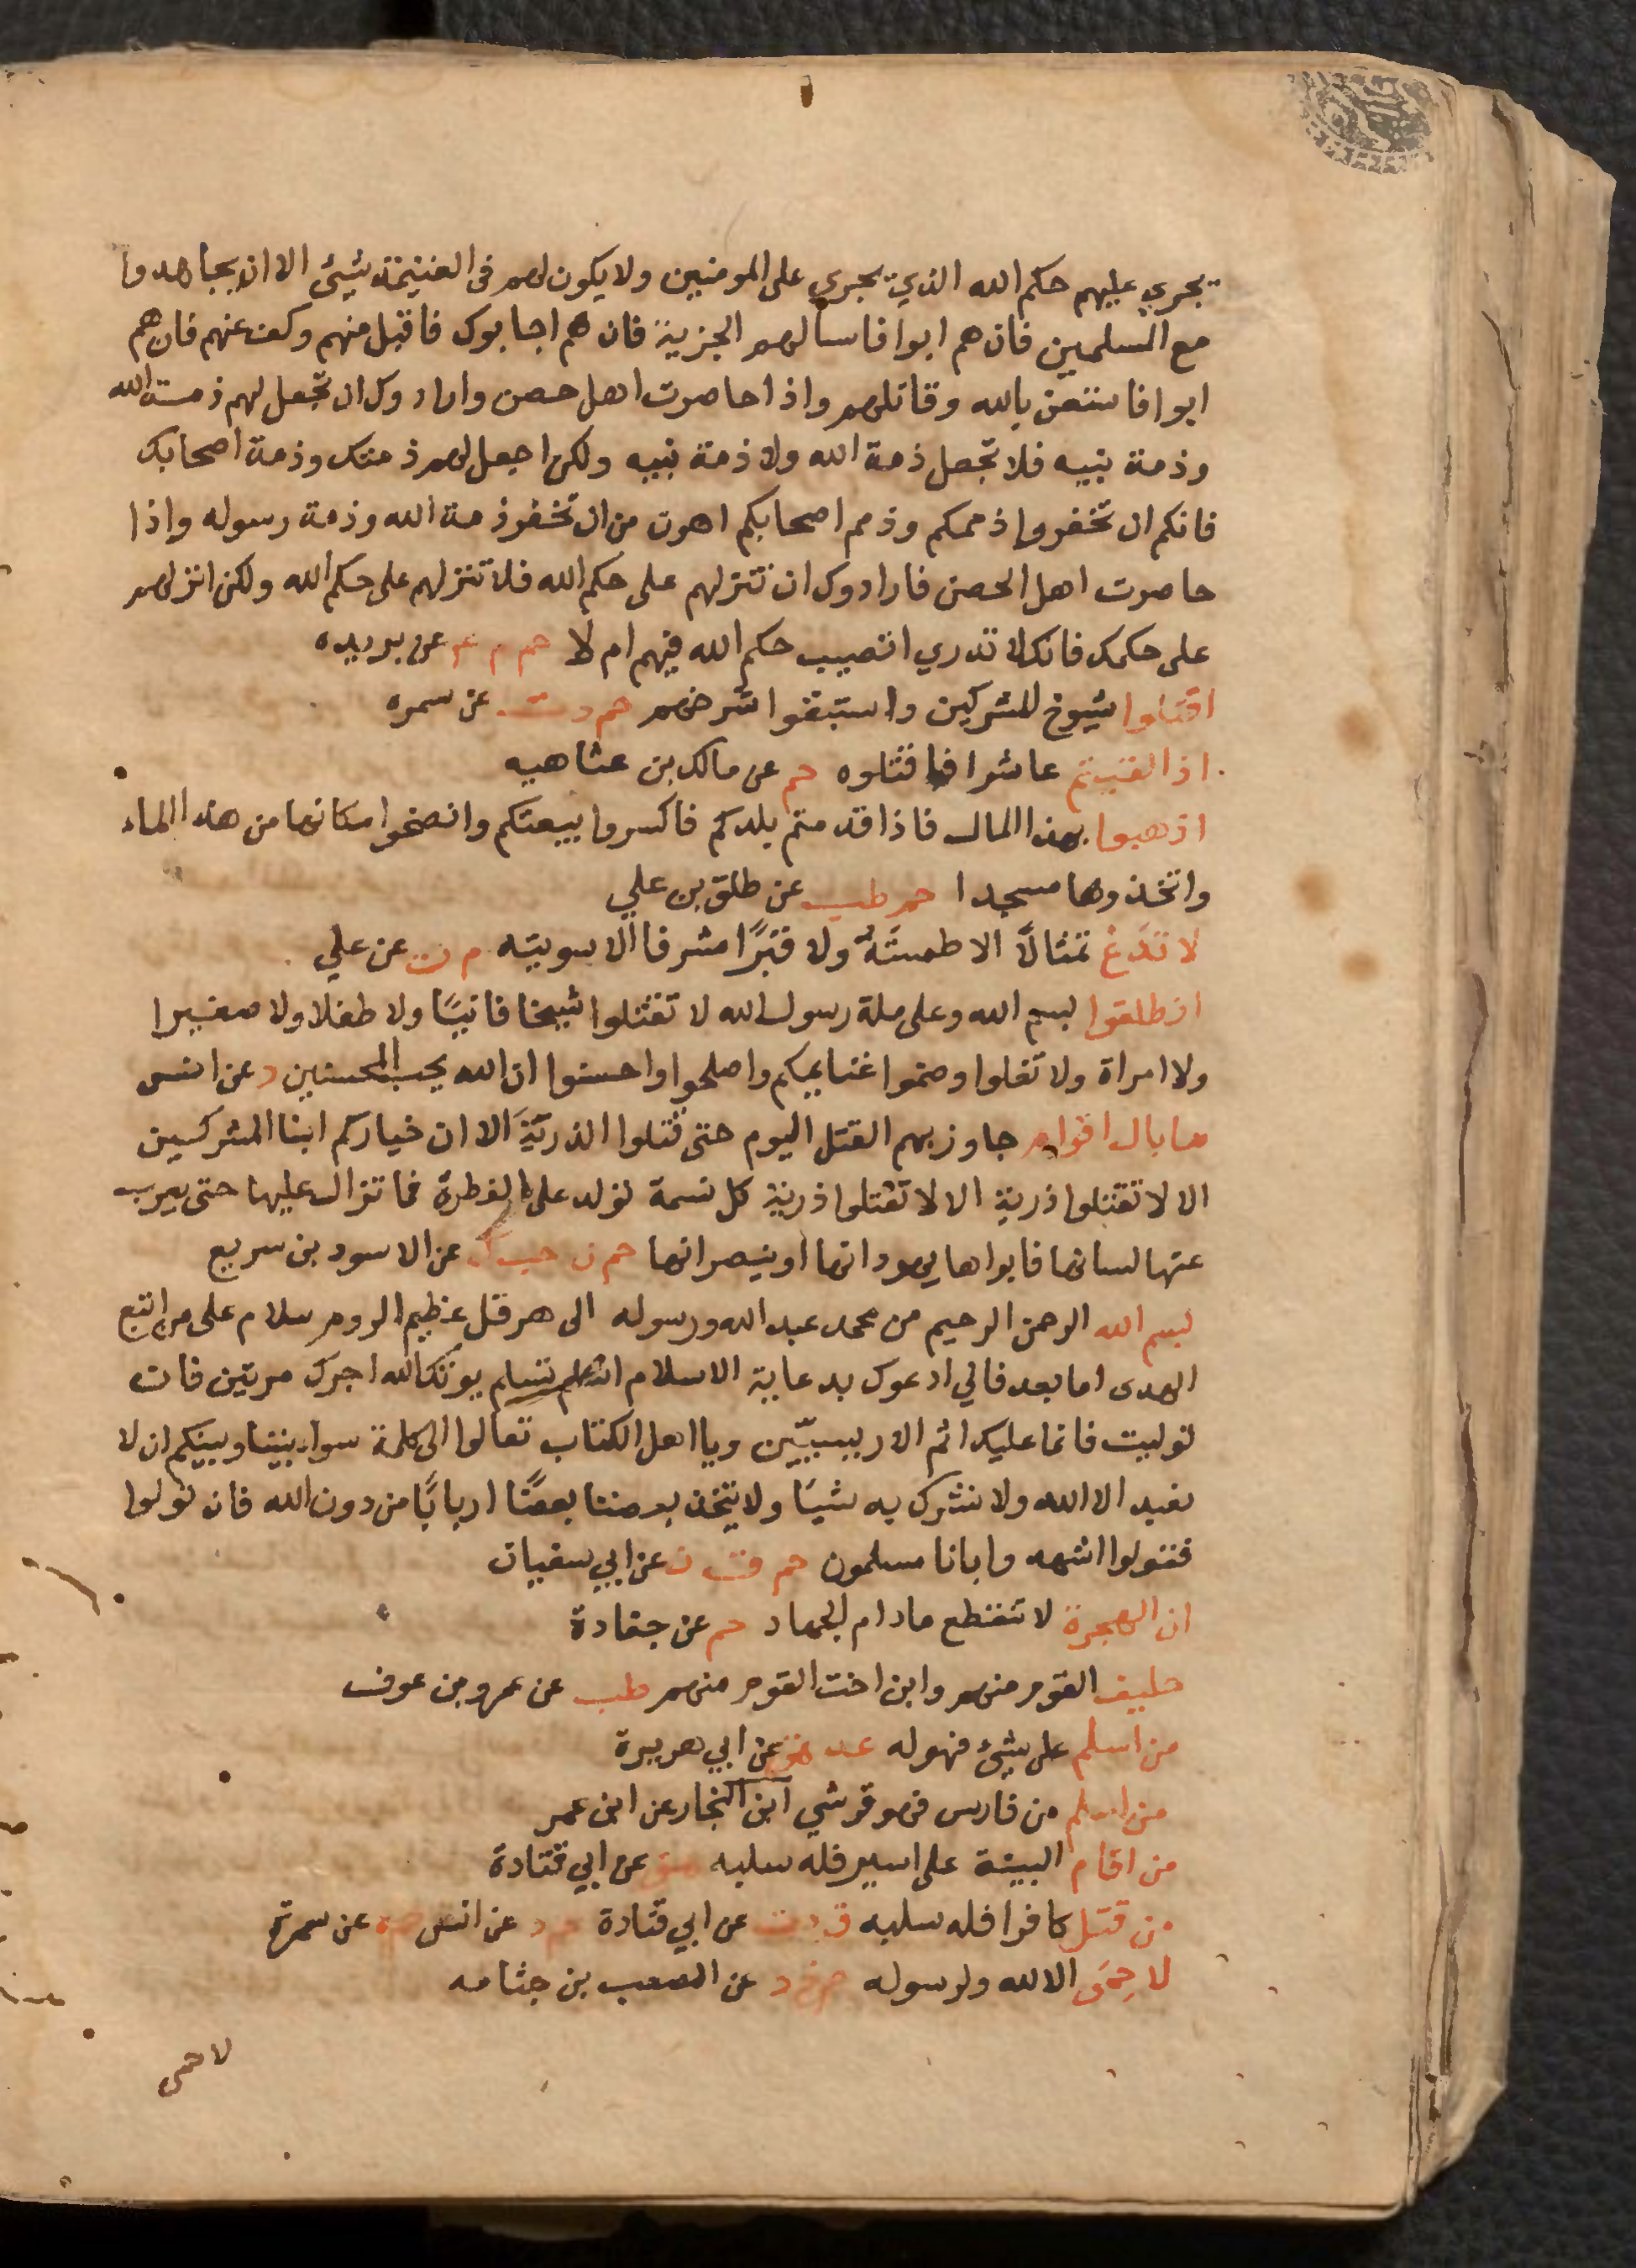 يجري عليهم حكم الله الذي يجري على المومنين ولا يكون لهم فى الغنيمة شيئ الا ان يجاهدوا
مع المسلمين فان هم ابوا فاسالهم الجزية فان هم اجابوك فاقبل منهم وكف عنهم فان هم
ابوا فاستعن بالله وقاتلهم واذا حاصرت اهل حصن وارادوك ان تجعل لهم ذمة الله
وذمة نبيه فلا تجعل ذمة الله ولا ذمة نبيه ولكن اجعل لهم ذمتك وذمة اصحابك
فانكم ان تخفروا ذممكم وذمم اصحابكم اهون من ان تخفر ذمة الله وذمة رسوله واذا
حاصرت اهل الحصن فارادوك ان تنزلهم على حكم الله فلا تنزلهم على حكم الله ولكن انزلهم
على حكمك فانك لا تدري اتصيب حكم الله فيهم ام لا حم م عن بريده
اقتلوا شيوخ المشركين واستبقوا شرخهم حم د ت عن سمره
اذا لقيتم عاشرا فاقتلوه حم عن مالك بن عثاهيه
اذهبوا بهذا المال فاذا قدمتم بلدكم فاكسروا بيعتكم وانضحوا مكانها من هذا الماء
واتخذوها مسجدا حم طب عن طلق بن علي
لا تدع تمثالًا الا طمسته ولا قبرًا مشرفا الا سويته م ن عن علي
انطلقوا بسم الله وعلى ملة رسول الله لا تقتلوا شيخا فانيًا ولا طفلا ولا صغيرا
ولا امراة ولا تغلوا وضموا غنايمكم واصلحوا واحسنوا ان الله يحب المحسنين د عن انس
ما بال اقوام جاوز بهم القتل اليوم حتى قتلوا الذريّة الا ان خياركم ابنا المشركين
الا لا تقتلوا ذرية الا لا تقتلوا ذرية كل نسمة تولد على الفطرة فما تزال عليها حتى يعرب
عنها لسانها فابواها يهودانها او ينصرانها حم ن حب ك عن الاسود بن سريع
بسم الله الرحمن الرحيم من محمد عبد الله ورسوله الى هرقل عظيم الروم سلام على من اتبع
الهدى اما بعد فاني ادعوك بدعاية الاسلام اسلم تسلم يوتك الله اجرك مرتين فان
توليت فانما عليك اثم الاريسيّين ويا اهل الكتاب تعالوا الى كلمة سواء بيننا وبينكم ان لا
نعبد الا الله ولا نشرك به شيئًا ولا يتخذ بعضنا بعضًا اربابًا من دون الله فان تولوا
فقولوا اشهدوا بانا مسلمون حم ق ت ن عن ابي سفيان
ان الهجرة لا تنقطع مادام الجهاد حم عن جنادة
حليف القوم منهم وابن اخت القوم منهم طب عن عمرو بن عوف
من اسلم على شيئ فهو له عد هق عن ابي هريرة
من اسلم من فارس فهو قرشي ابن النجار عن ابن عمر
من اقام البينة على اسير فله سلبه عن ابي قتادة
من قتل كافرا فله سلبه ق د ت عن ابي قتادة حم د عن انس عن سمرة
لا حِمَى الا لله ولرسوله حم خ د عن الصعب بن جثامه
لا حمى